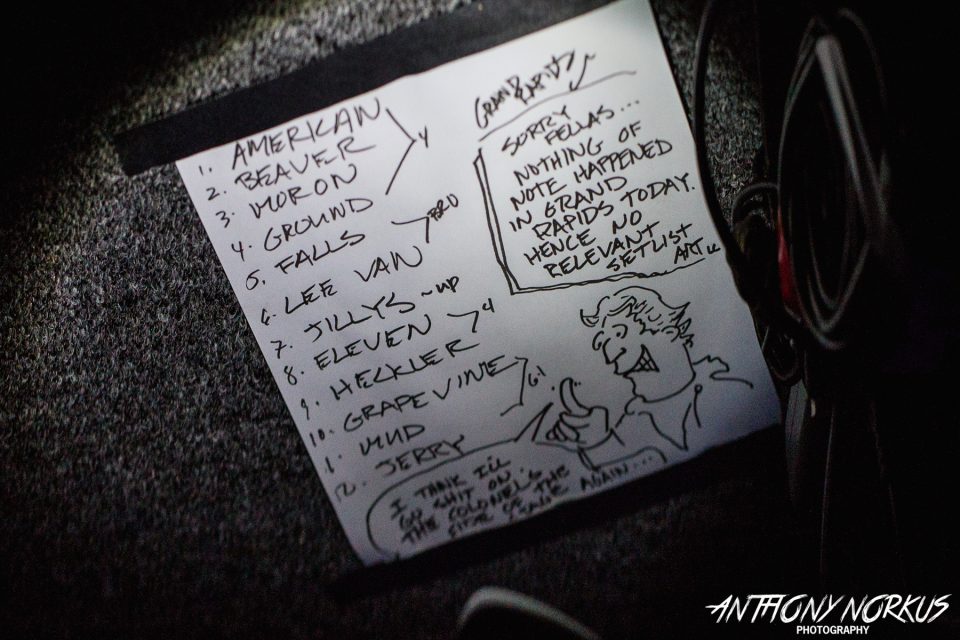 1. AMERICAN
2. BEAVER
3. MORON
4. GROUND
5. FALLS
6. LEE VAN
7. JILLYS ~UP
8. ELEVEN
9. HECKLER
10. GRAPEVINE
1. MUD
12. JERRY
4
BRO
4
6!
GRAND
RAPIDS~
SORRY
FELLAS...
NOTHING OF
NOTE HAPPENED
IN GRAND
RAPIDS TODAY.
HENCE NO
RELEVANT
SETLIST
ART
I THINK I'LL
GO SHIT ON
THE COLONEL'S
SIDE OF THE
AGAIN...
ANTHONY NORKUS
PHOTOGRAPHY